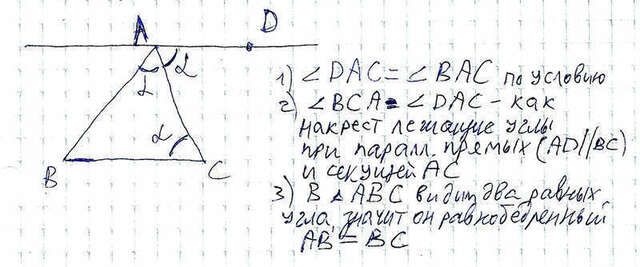 A
D
α
α
α
B
C
1) ∠DAC = ∠BAC по условию
2) ∠BCA = ∠DAC - как
накрест лежащие углы
при паралл. прямых (AD//BC)
и секущей AC
3) В ∆ ABC видим два равных
угла, значит он равнобедренный
AB = BC